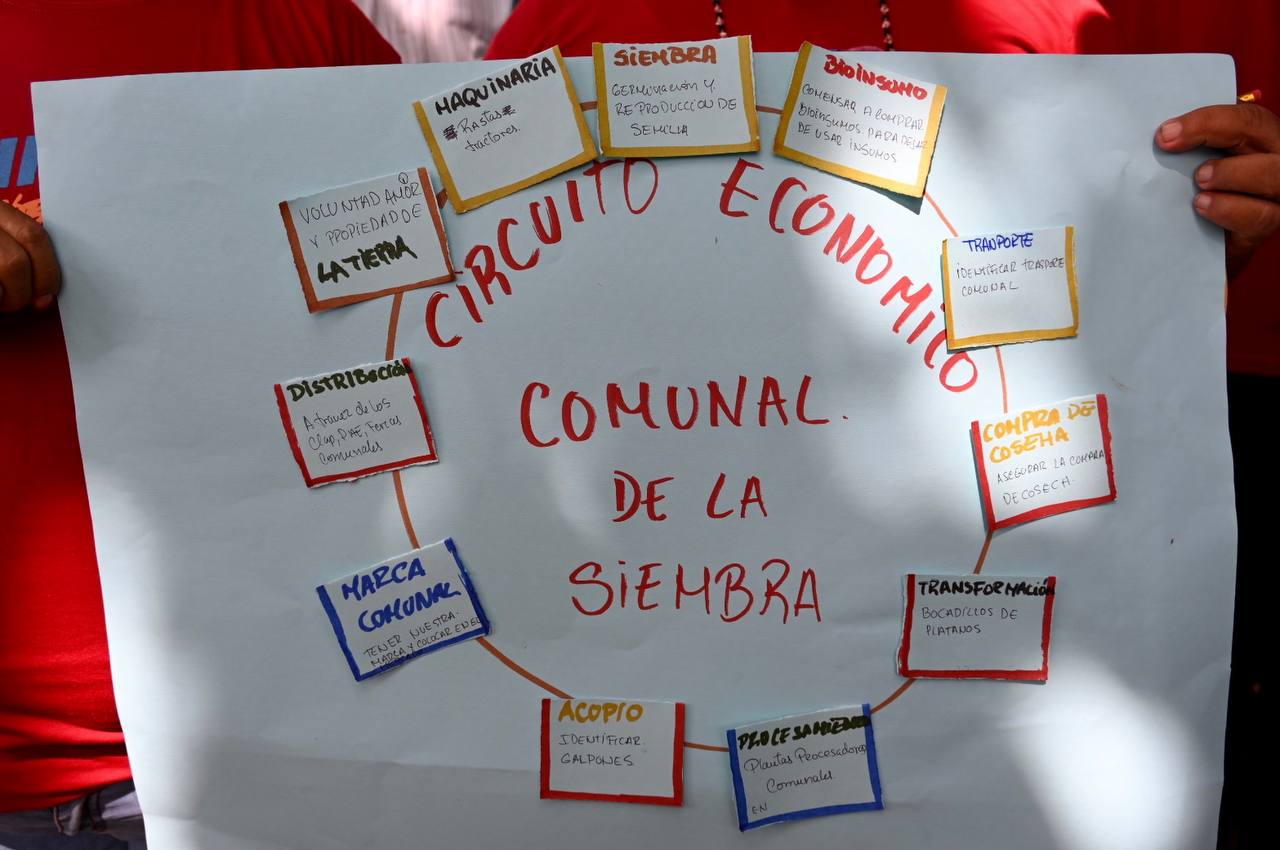 CIRCUITO ECONOMICO
COMUNAL.
DE LA
SIEMBRA
VOLUNTAD AMOR
Y PROPIEDAD DE
LA TIERRA
MAQUINARIA
Rastas
tractores.
SIEMBRA
GERMINACIÓN Y
REPRODUCCION DE
SEMILIA
BIOINSUMO
COMENSAR A COMPRAR
BIOINSUMOS. PARA DEJAR
DE USAR INSUMOS
TRANPORTE
IDENTIFICAR TRASPORE
COMUNAL
COMPRA DE
COSEHA
ASEGURAR LA COMPRA
DE COSECH.
TRANSFORMACIÓN
BOCADILLOS DE
PLATANOS
PROCESAMIENTO
Plantas Procesadoras
Comunales
EN
ACOPIO
IDENTIFICAR
GALPONES
MARCA
COMUNAL
TENER NUESTRA
MARCA Y COLOCAR EN EL
DISTRIBUCIÓN
A travez de los
Clap, PAE, Ferias
Comunales